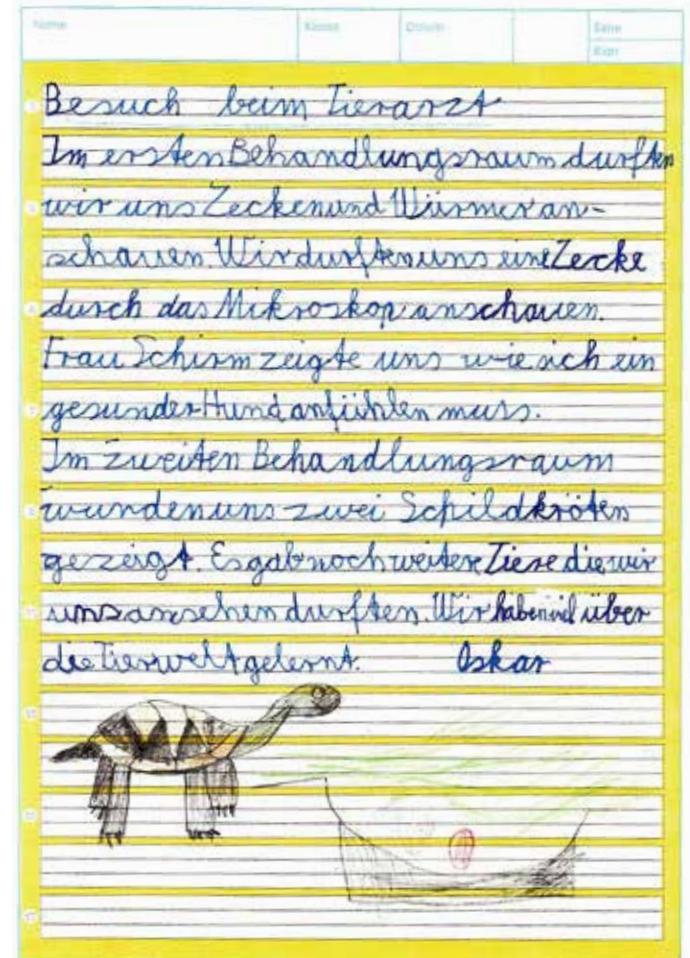 Name Klasse Datum Seite
Besuch beim Tierarzt
Im ersten Behandlungsraum durften
wir uns Zecken und Würmer an-
schauen. Wir durften uns eine Zecke
durch das Mikroskop anschauen.
Frau Schirm zeigte uns wie sich ein
gesunder Hund anfühlen muss.
Im zweiten Behandlungsraum
wurden uns zwei Schildkröten
gezeigt. Es gab noch weitere Tiere die wir
uns ansehen durften. Wir haben viel über
die Tierwelt gelernt. Oskar